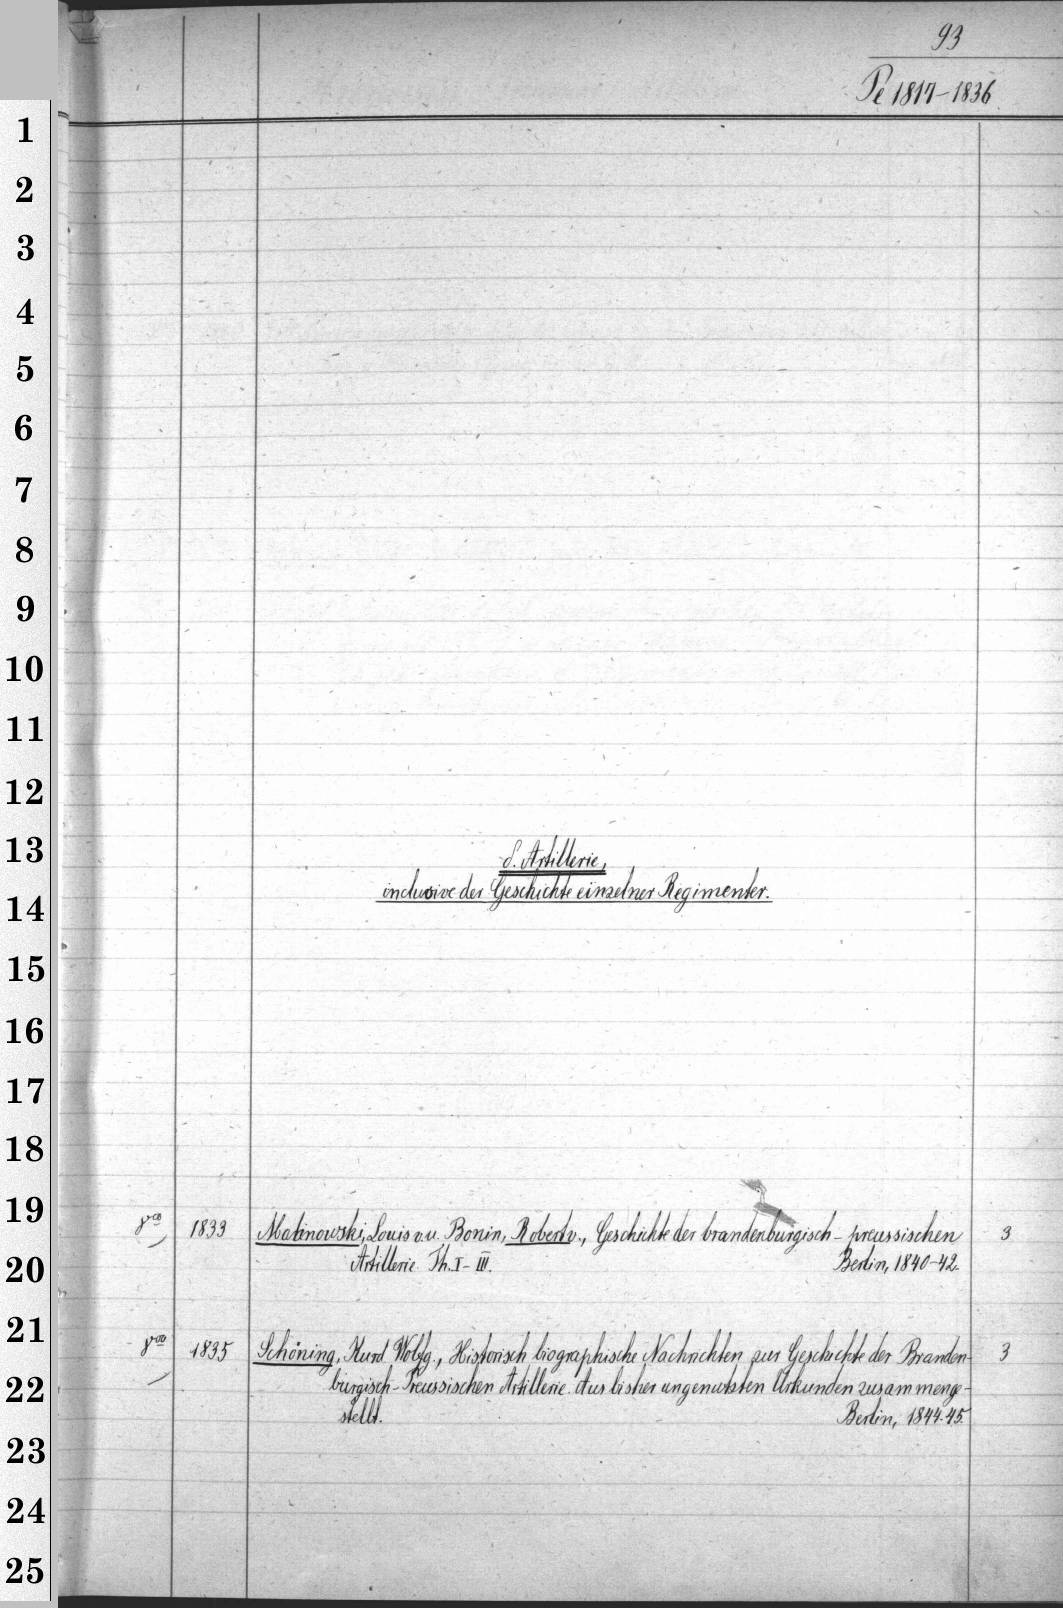 93
Pe 1817-1836
1
2
3
4
5
6
7
8
9
10
11
12
13
δ. Artillerie,
inclusive der Geschichte einzelner Regimenter.
14
15
16
17
18
19
8vo 1833 Malinowski, Louis v. u. Bonin, Robert v., Geschichte der brandenburgisch-preussischen 3
20
Artillerie Th. I-III. Berlin, 1840-42.
21
8vo 1835 Schöning, Kurd Wolfg., Historisch biographische Nachrichten zur Geschichte der Branden- 3
22
burgisch-Preussischen Artillerie. Aus bisher ungenutzten Urkunden zusammenge-
stellt. Berlin, 1844-45.
23
24
25